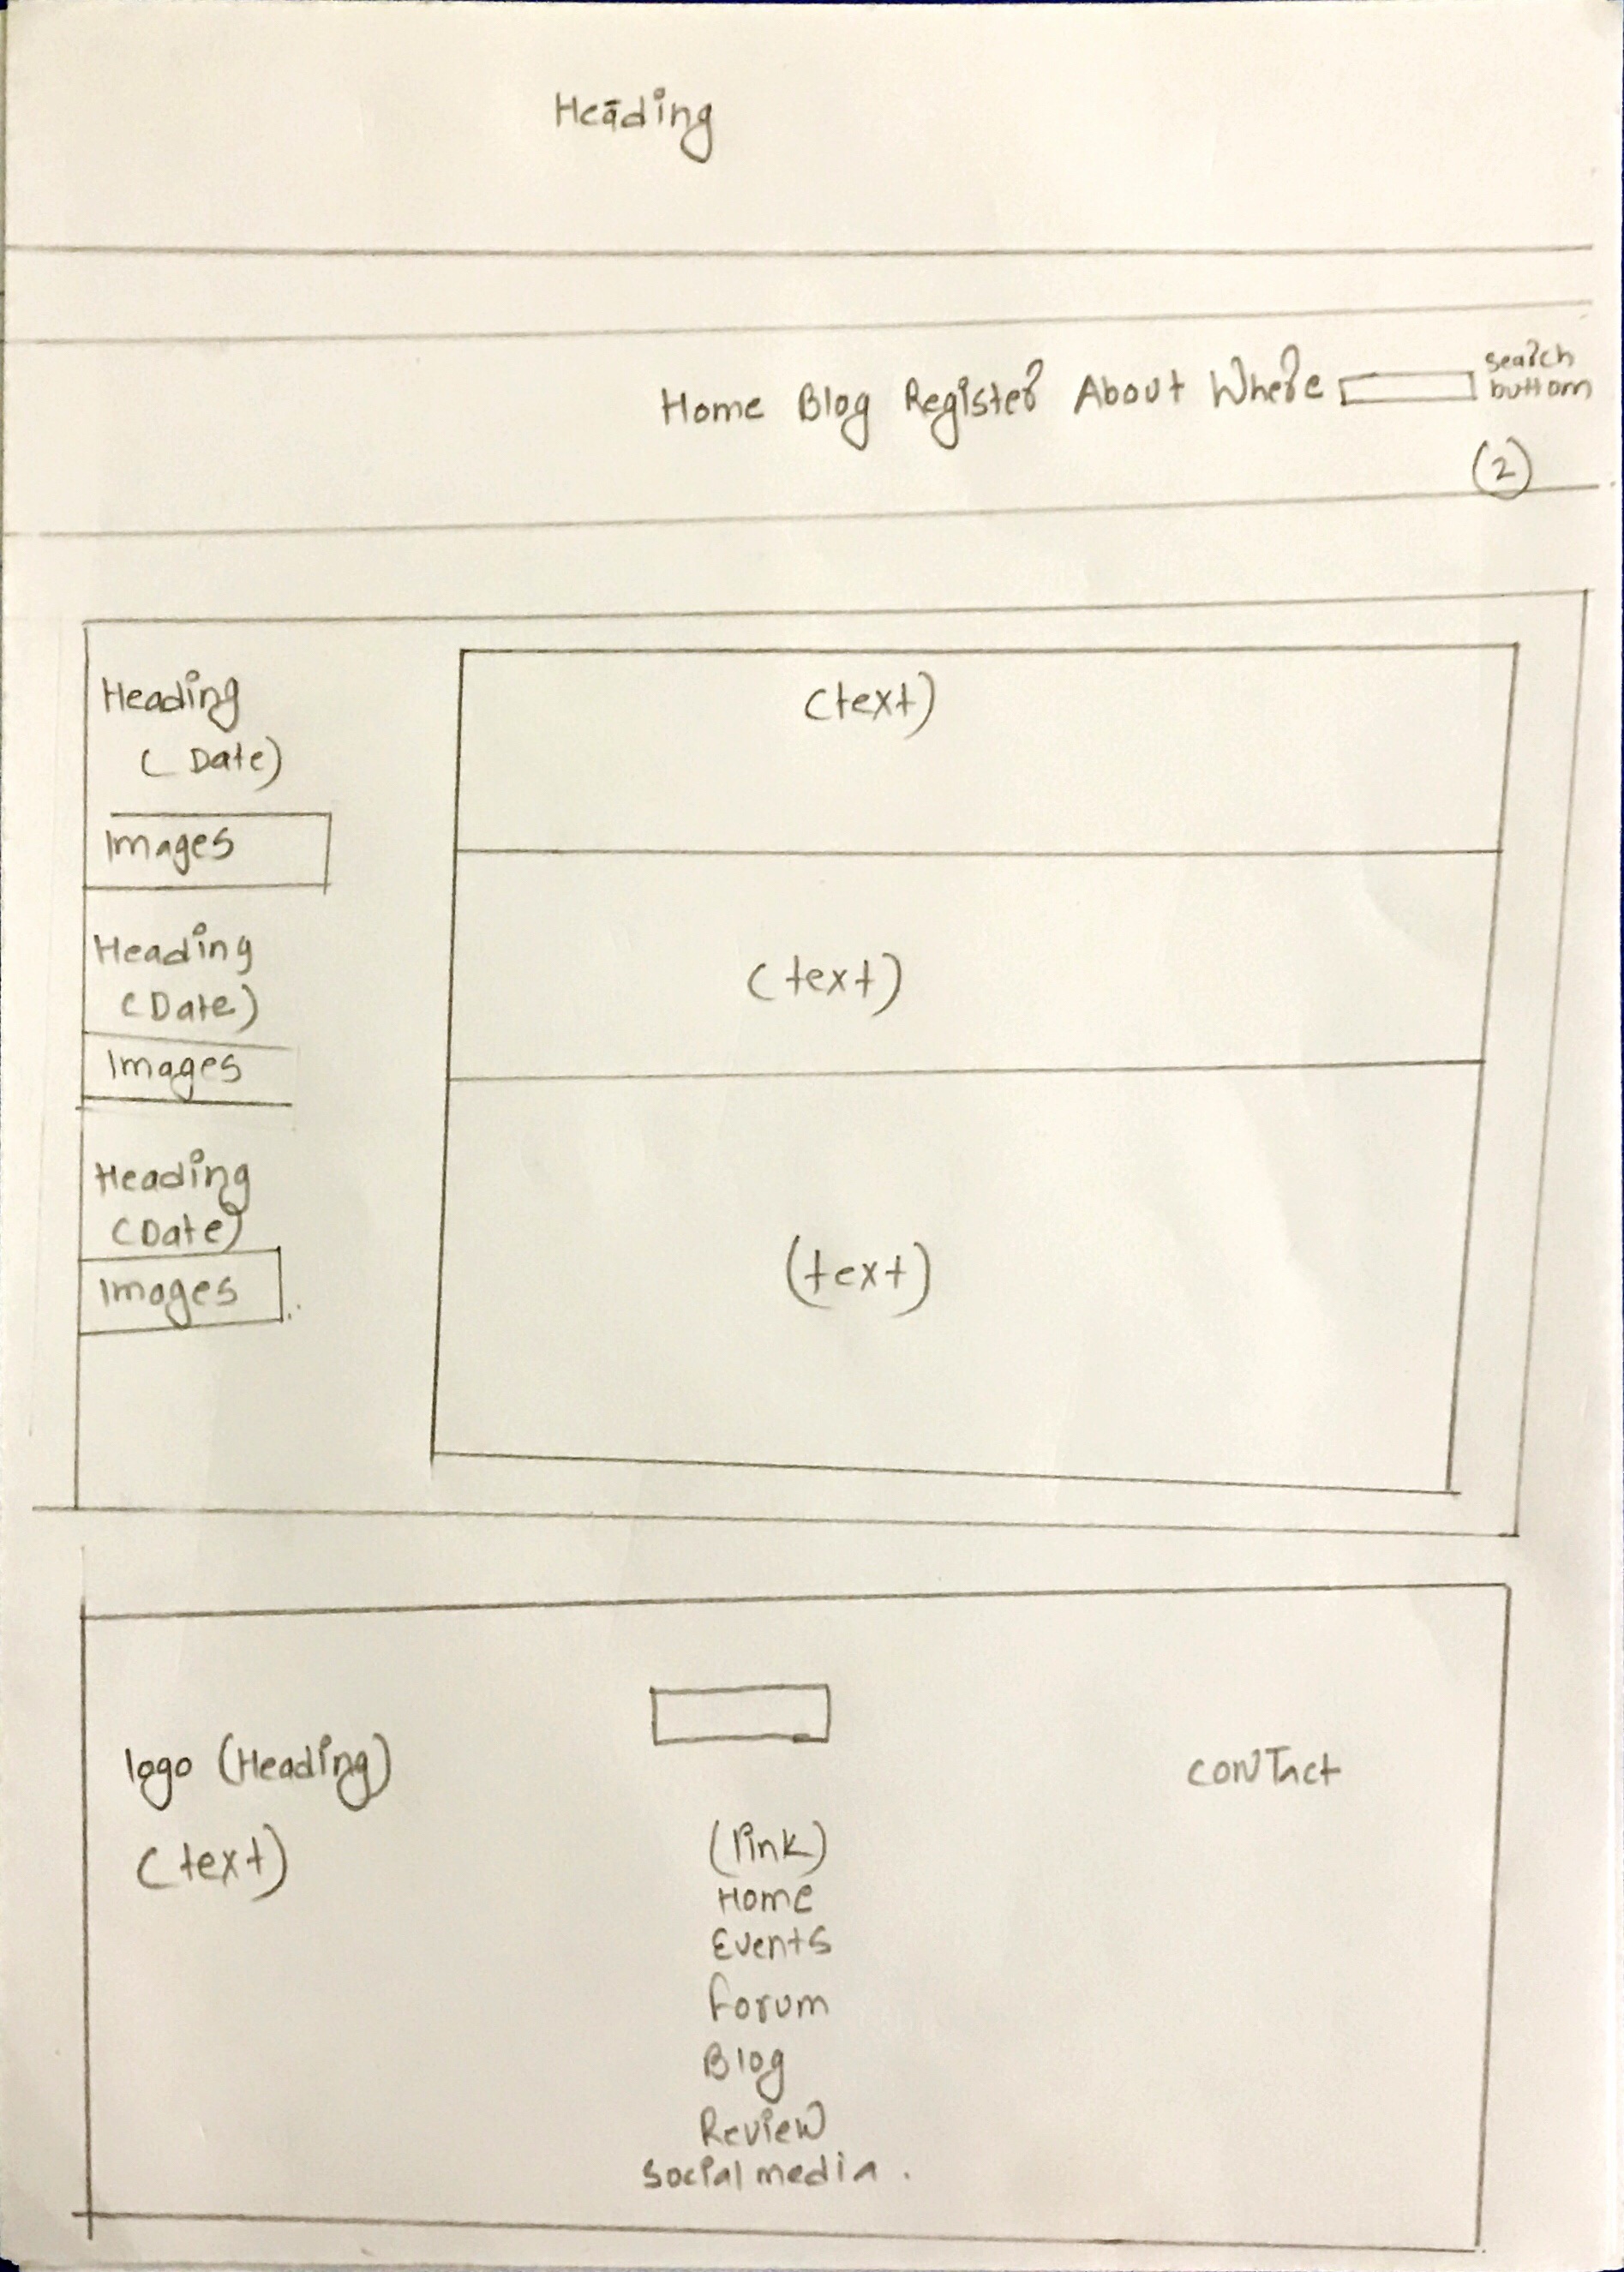 Heading
Home Blog Register About Where
search
button
(2)
Heading
(Date)
Images
(text)
Heading
(Date)
Images
(text)
Heading
(Date)
Images
(text)
logo (Heading)
(text)
(link)
Home
Events
Forum
Blog
Review
Social media.
Contact